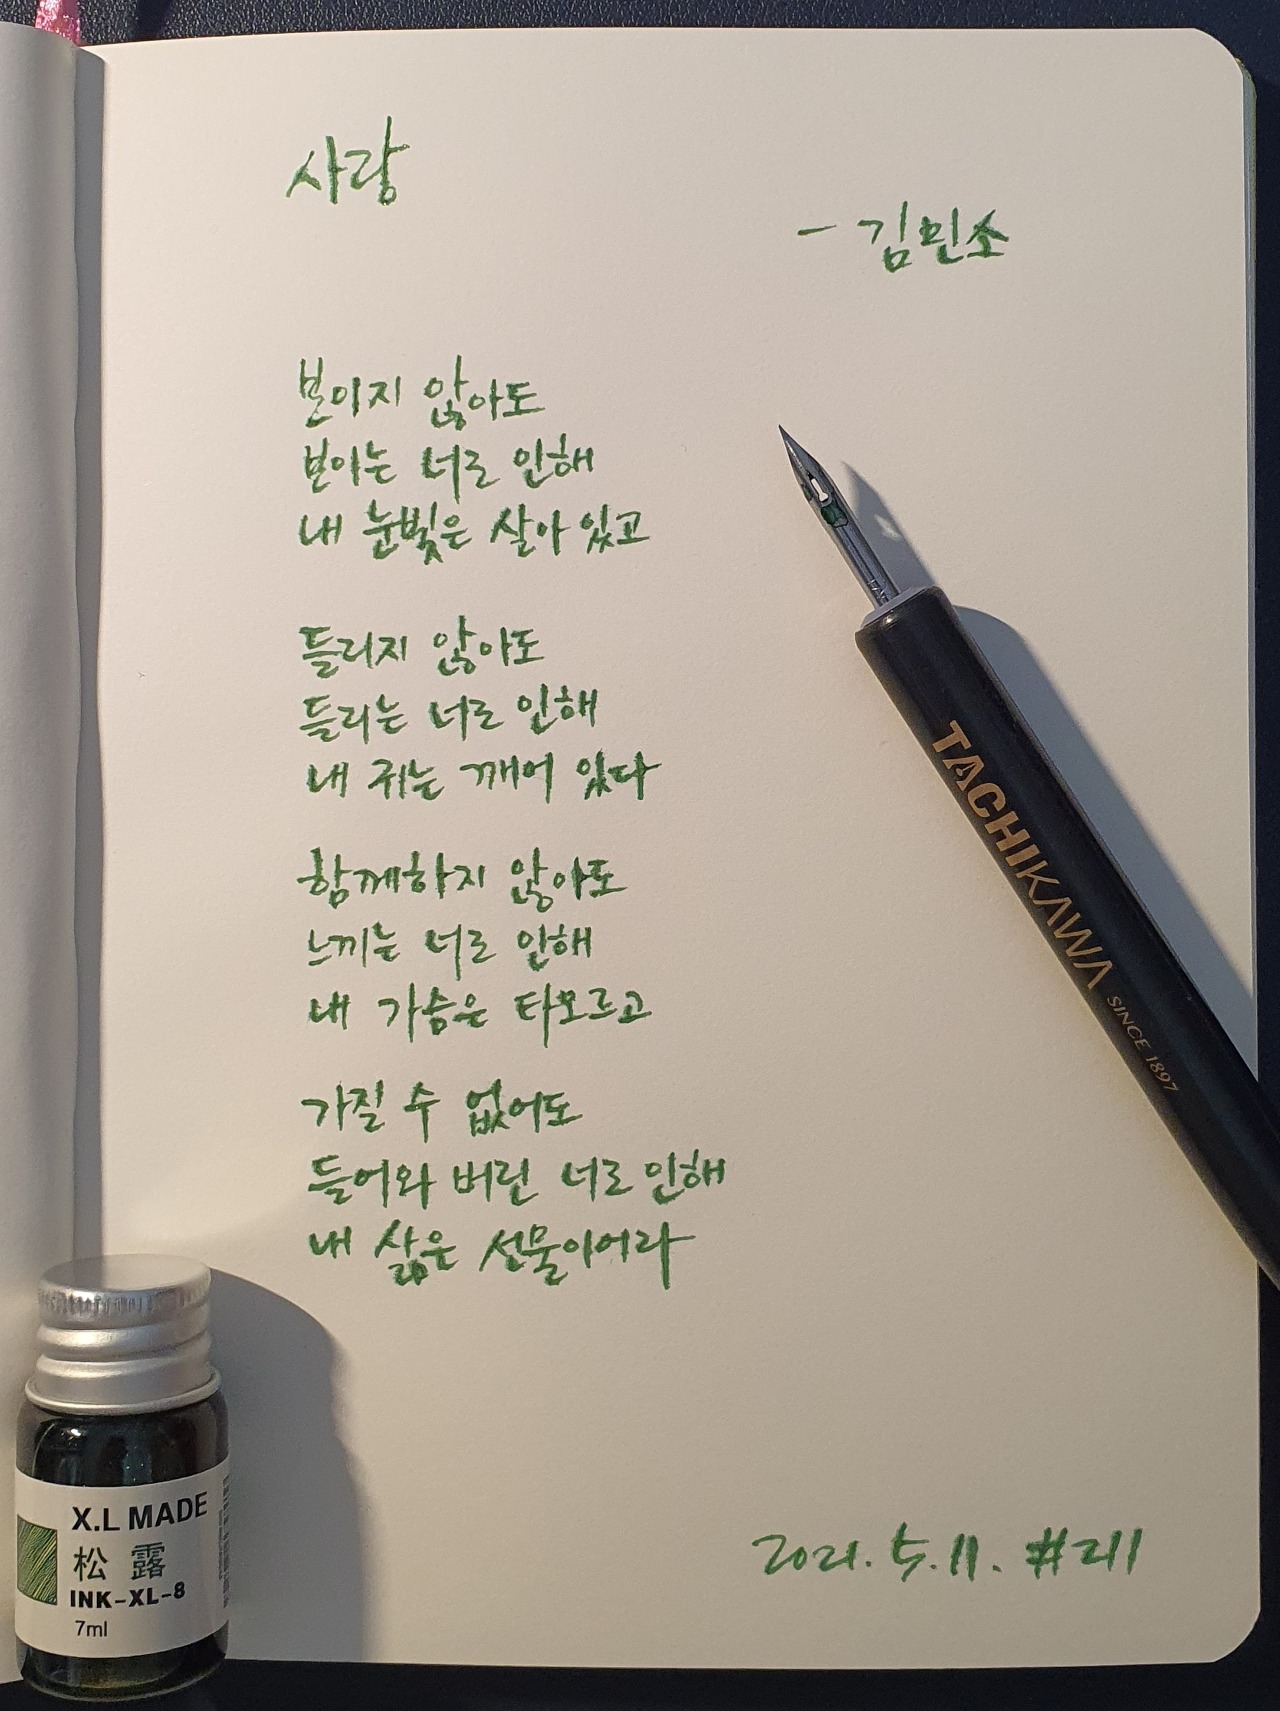 사랑
- 김민소
보이지 않아도
보이는 너로 인해
내 눈빛은 살아 있고
들리지 않아도
들리는 너로 인해
내 귀는 깨어 있다
함께하지 않아도
느끼는 너로 인해
내 가슴은 타오르고
가질 수 없어도
들어와 버린 너로 인해
내 삶은 선물이어라
2021. 5. 11. #211
TACHIKAWA SINCE 1897
X.L MADE
松露
INK-XL-8
7ml